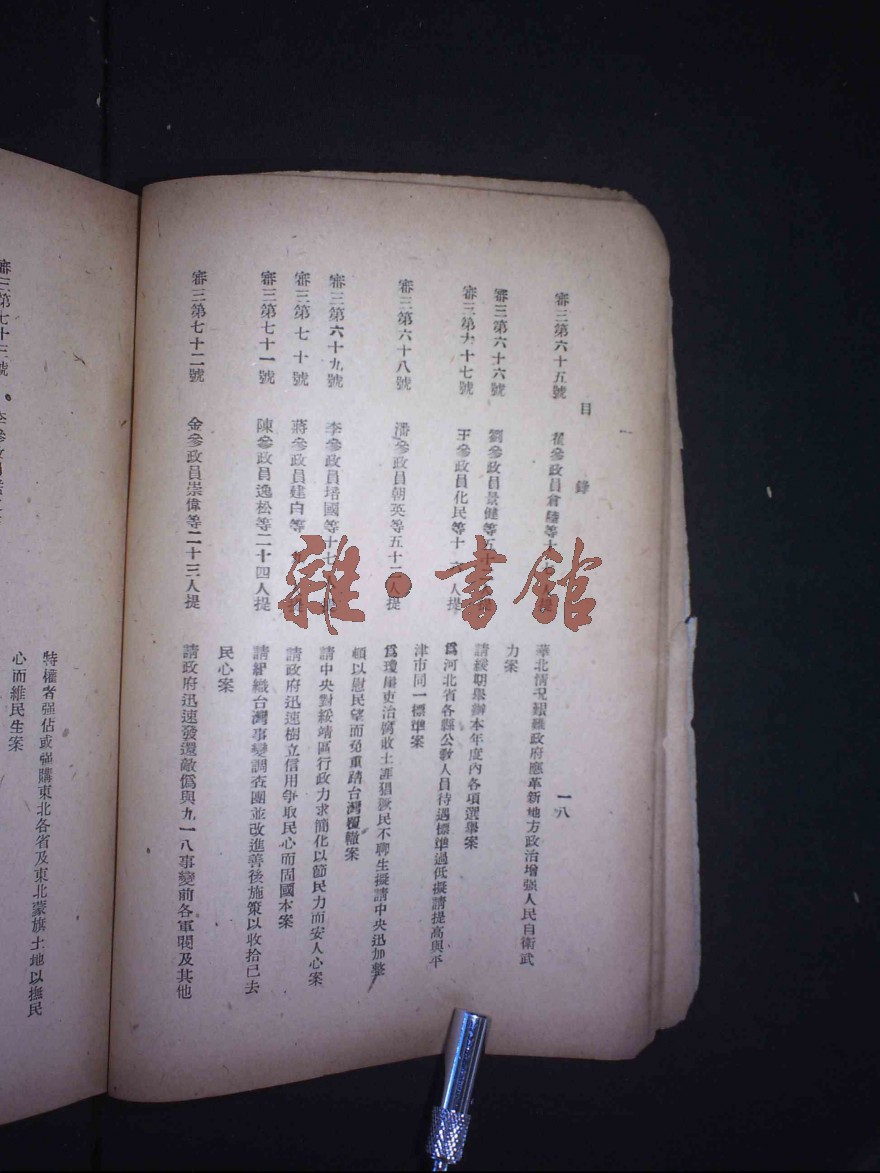 目 錄 一八
審三第六十五號 翟參政員倉陸等 人提 華北情況艱難政府應革新地方政治增强人民自衛武
力案
審三第六十六號 劉參政員景健等 請緩期舉辦本年度內各項選舉案
審三第六十七號 王參政員化民等十 人提 爲河北省各縣公敎人員待遇標準過低擬請提高與平
津市同一標準案
審三第六十八號 潘參政員朝英等五十二人提 爲瓊崖吏治腐敗土匪猖獗民不聊生擬請中央迅加整
頓以慰民望而免重踏台灣覆轍案
審三第六十九號 李參政員培國等十七人提 請中央對綏靖區行政力求簡化以節民力而安人心案
審三第七十號 蔣參政員建白等 人提 請政府迅速樹立信用爭取民心而固國本案
審三第七十一號 陳參政員逸松等二十四人提 請組織台灣事變調查團並改進善後施策以收拾已去
民心案
審三第七十二號 金參政員崇偉等二十三人提 請政府迅速發還敵僞與九一八事變前各軍閥及其他
特權者强佔或强購東北各省及東北蒙旗土地以撫民
心而維民生案
審三第七十三號 李參政員
雜·書館